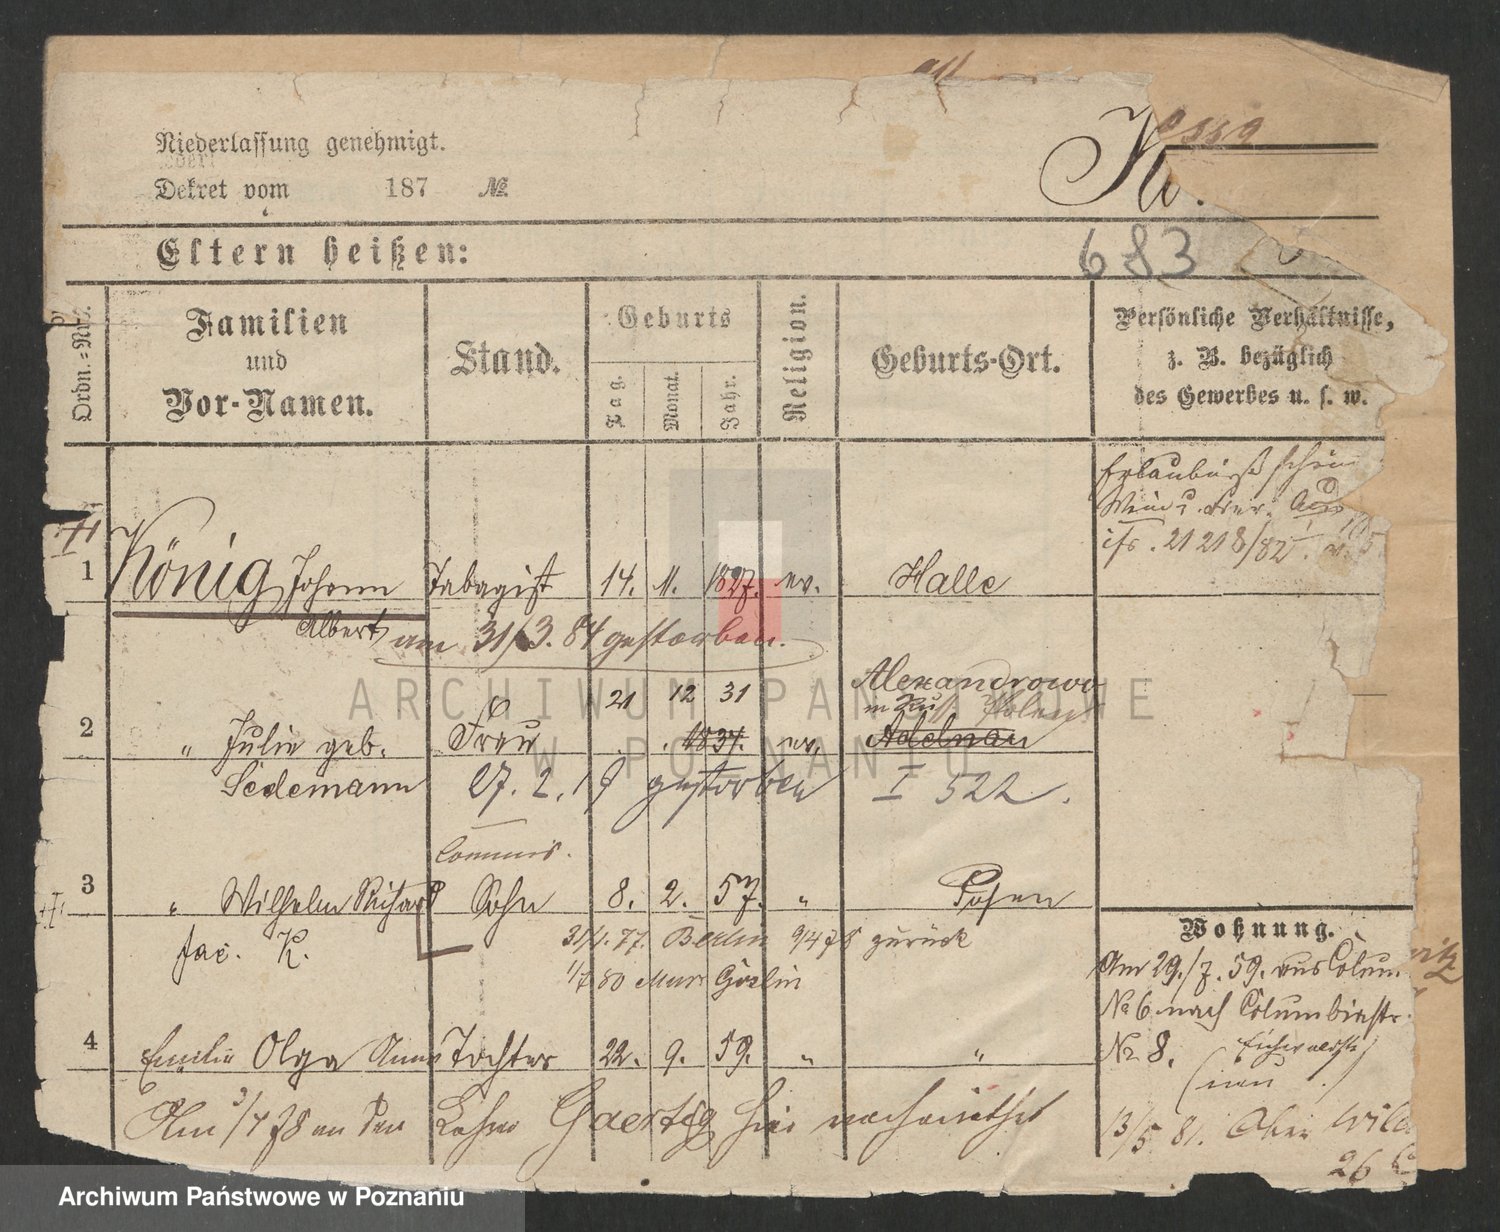 Niederlassung genehmigt.
Dekret vom 187 №
683
Eltern heißen:
Ordn.=Nro.
Familien
und
Vor-Namen.
Stand.
Geburts
Tag.
Monat.
Jahr.
Religion.
Geburts-Ort.
Persönliche Verhältnisse,
z. B. bezüglich
des Gewerbes u. s. w.
Erlaubniß schein
21 218/82
1 König Johann Tabagist 14. 11. 1827. ev. Halle
Albert am 31/3. 84 gestorben.
21 12 31 Alexandrowo
2 " Julie geb. Frau 1837. ev. Adelnau
Sedemann 27. 2. 19 gestorben I 522.
Commis.
3 " Wilhelm Richard Sohn 8. 2. 57. " Posen
Jac. K. 31/1. 77. Berlin 9/4 78 zurück
1/7 80
Wohnung.
Am 29./7. 59. aus Colum
No 6 nach Columbiastr.
No 8.
4 Emilie Olga Anna Tochter 22. 9. 59. " "
Am 3/4 78 an den Lehrer Gaertig hier verheirathet
13/5 81. Ober Wilda
26
ARCHIWUM PAŃSTWOWE
W POZNANIU
Archiwum Państwowe w Poznaniu